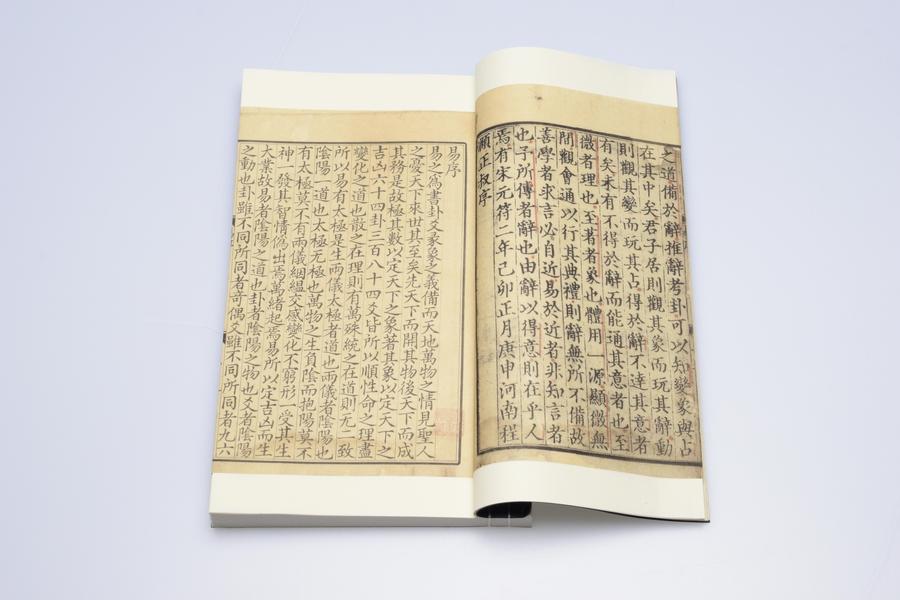 之道備於辭推辭考卦可以知變象與占
在其中矣君子居則觀其象而玩其辭動
則觀其變而玩其占得於辭不達其意者
有矣未有不得於辭而能通其意者也至
微者理也至著者象也體用一源顯微無
間觀會通以行其典禮則辭無所不備故
善學者求言必自近易於近者非知言者
也予所傳者辭也由辭以得意則在乎人
焉有宋元符二年己卯正月庚申河南程
頤正叔序
易序
易之為書卦爻彖象之義備而天地萬物之情見聖人
之憂天下來世其至矣先天下而開其物後天下而成
其務是故極其數以定天下之象著其象以定天下之
吉凶六十四卦三百八十四爻皆所以順性命之理盡
變化之道也散之在理則有萬殊統之在道則无二致
所以易有太極是生兩儀太極者道也兩儀者陰陽也
陰陽一道也太極无極也萬物之生負陰而抱陽莫不
有太極莫不有兩儀絪緼交感變化不窮形一受其生
神一發其智情偽出焉萬緒起焉易所以定吉凶而生
大業故易者陰陽之道也卦者陰陽之物也爻者陰陽
之動也卦雖不同所同者奇偶爻雖不同所同者九六